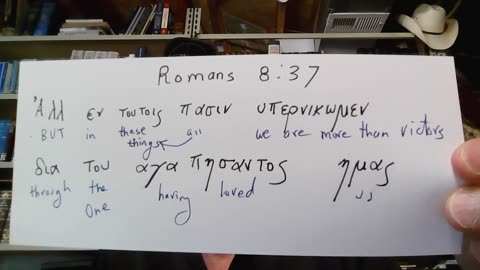 Romans 8:37
Ἀλλ εν τουτοις πασιν υπερνικωμεν
BUT in these things all we are more than victors
δια του αγαπησαντος ημας
through the One having loved us